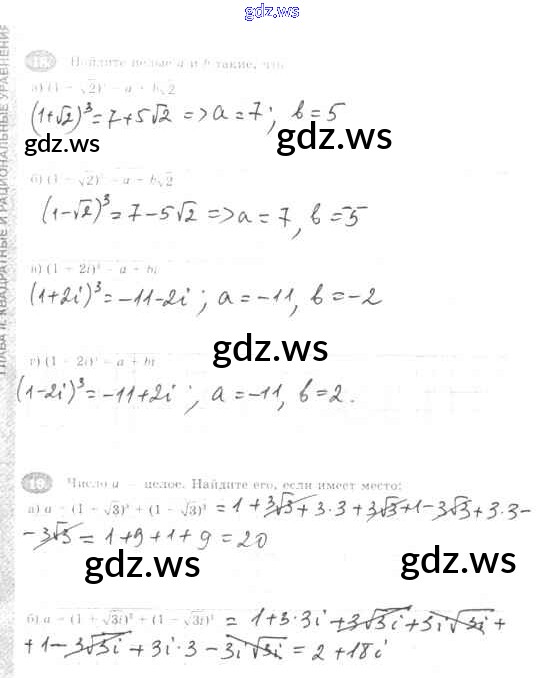 gdz.ws
ГЛАВА II. КВАДРАТНЫЕ И РАЦИОНАЛЬНЫЕ УРАВНЕНИЯ
18. Найдите целые a и b такие, что
а) (1 + √2)³ = a + b√2
(1+√2)³ = 7+5√2 => a=7; b=5
gdz.ws
gdz.ws
б) (1 - √2)³ = a + b√2
(1-√2)³ = 7-5√2 => a=7, b=-5
в) (1 + 2i)³ = a + bi
(1+2i)³ = -11-2i; a=-11, b=-2
gdz.ws
г) (1 - 2i)³ = a + bi
(1-2i)³ = -11+2i; a=-11, b=2.
19. Число a — целое. Найдите его, если имеет место:
а) a = (1 + √3)³ + (1 - √3)³ = 1+3√3+3·3+3√3+1-3√3+3·3-
-3√3 = 1+9+1+9=20
gdz.ws
gdz.ws
б) a = (1 + √3i)³ + (1 - √3i)³ = 1+3·3i+3√3i+3i√3i+
+1-3√3i+3i·3-3i√3i=2+18i